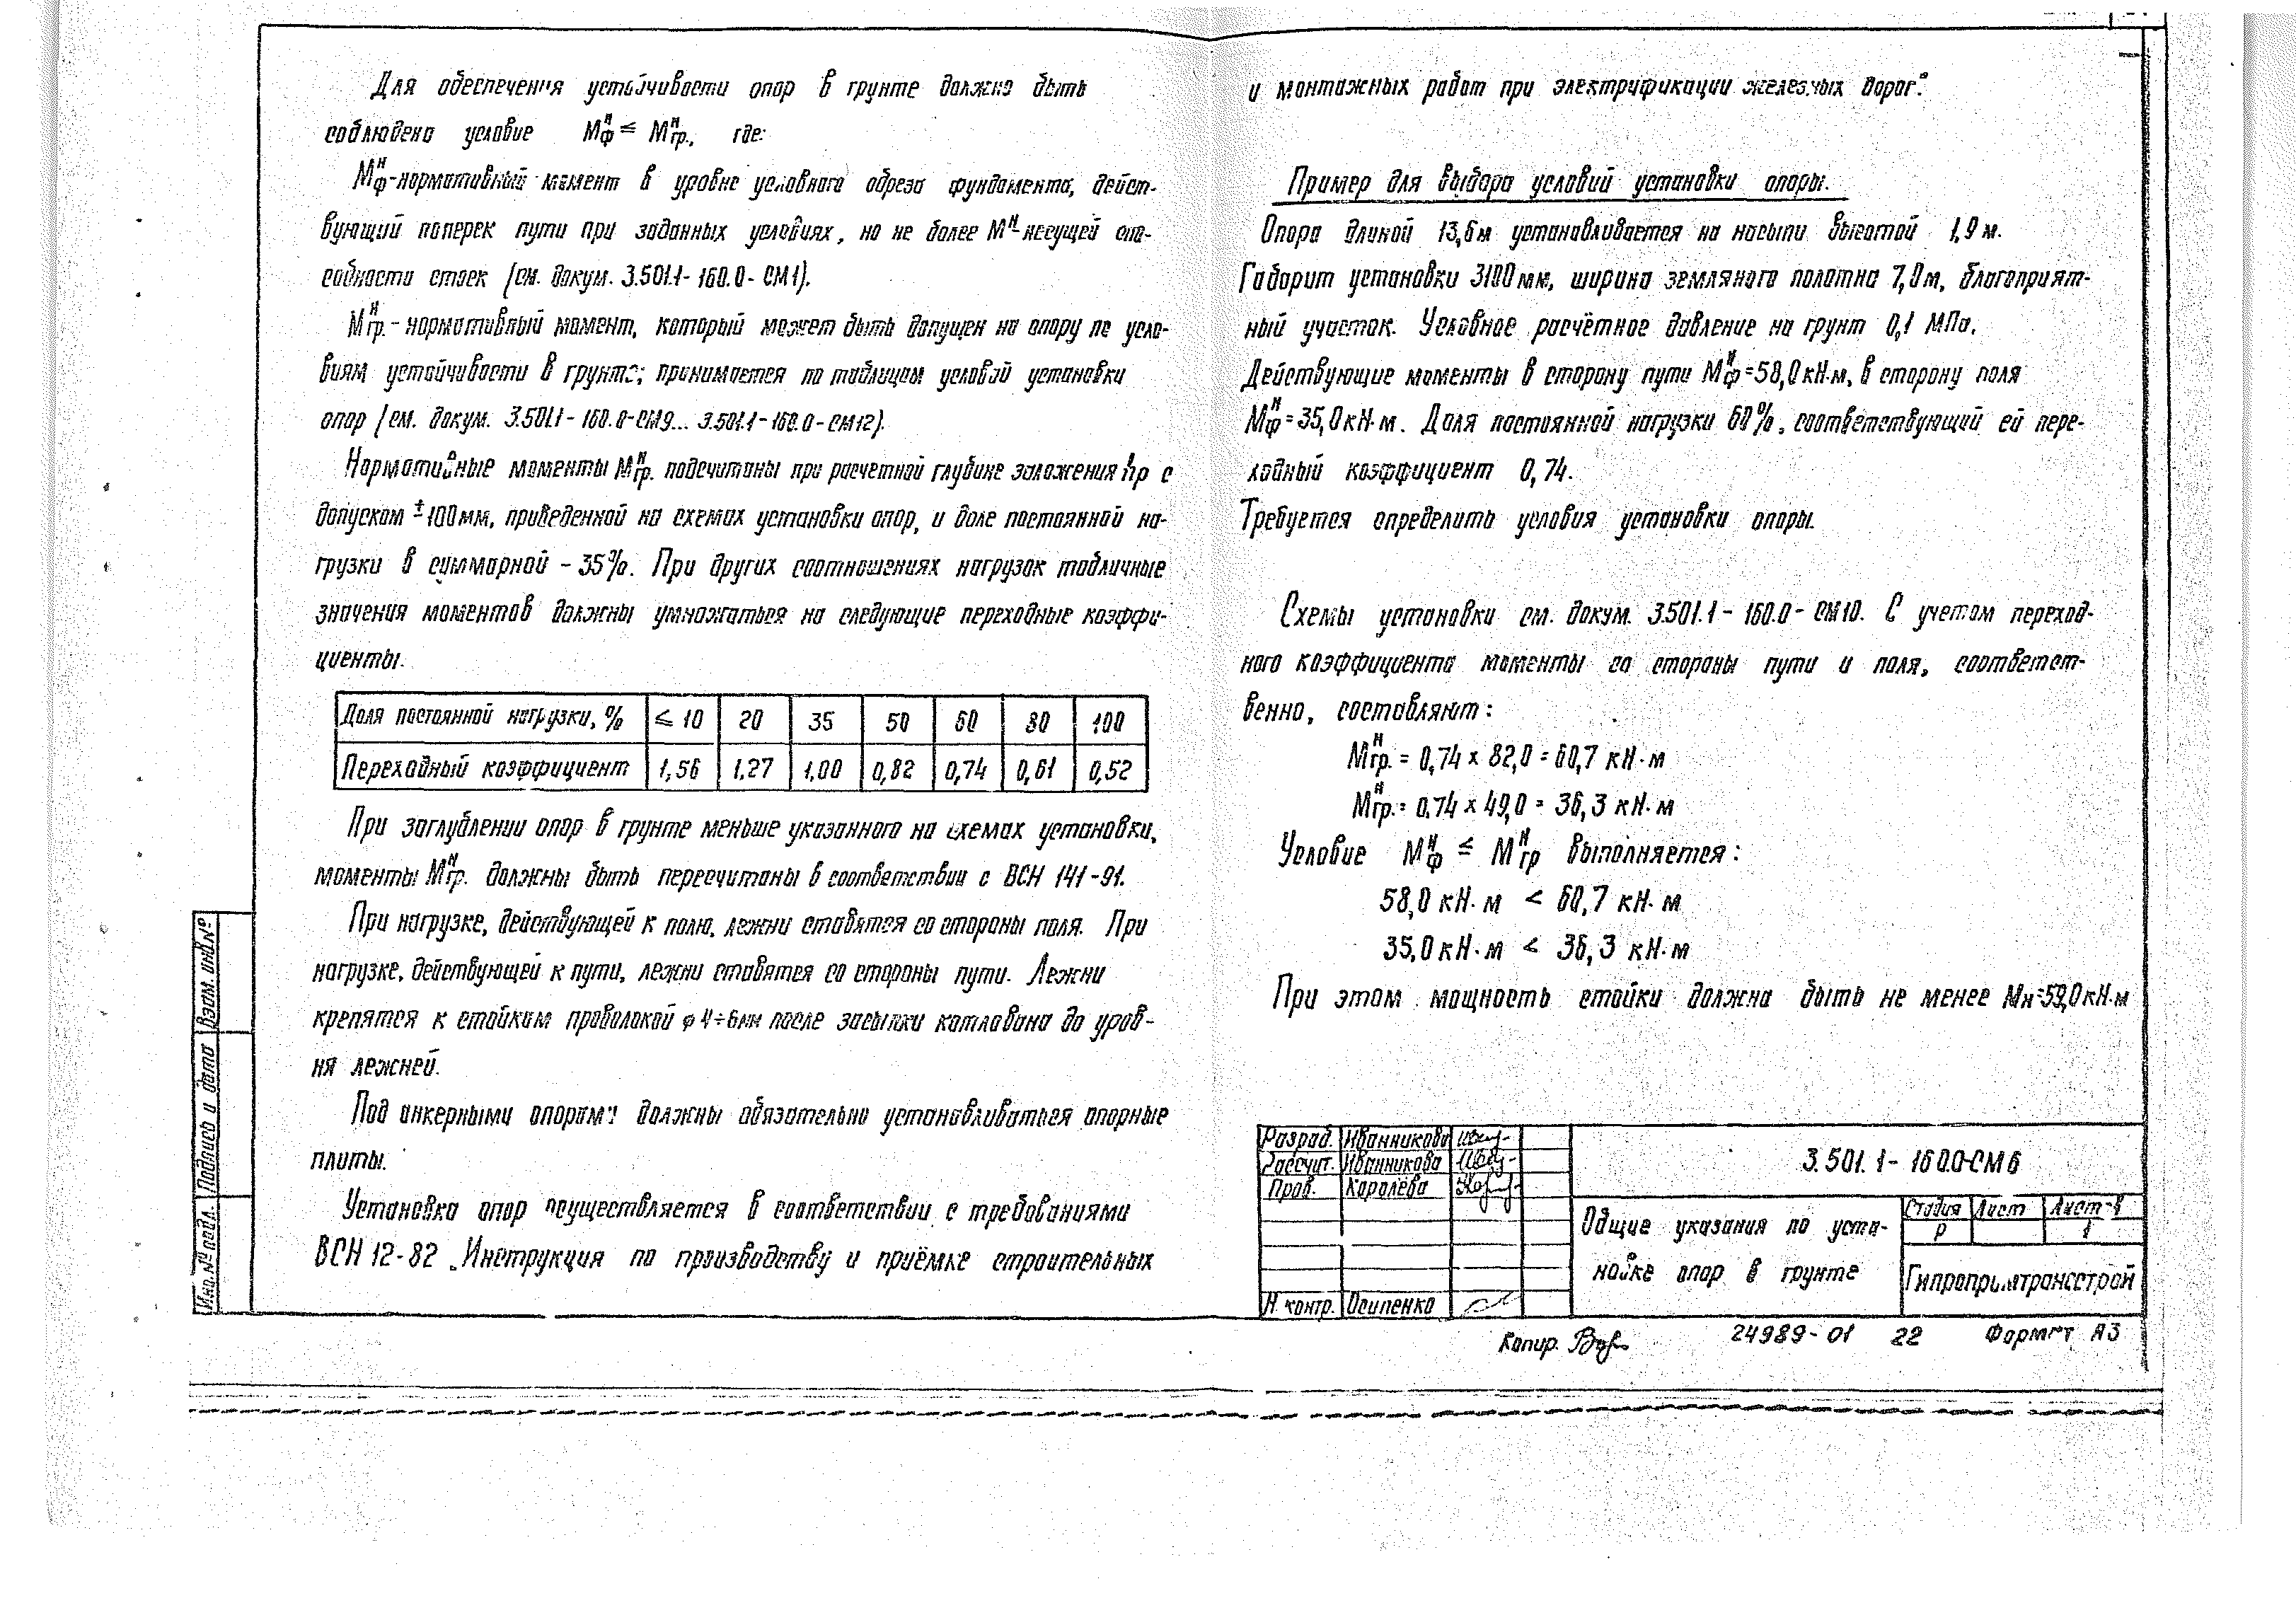 Для обеспечения устойчивости опор в грунте должно быть
соблюдено условие Mфᴴ ≤ Mгр.ᴴ, где:
Mфᴴ-нормативный момент в уровне условного обреза фундамента, дейст-
вующий поперек пути при заданных условиях, но не более Mᴴ-несущей спо-
собности стоек (см. докум. 3.501.1-160.0-СМ1).
Mгр.ᴴ- нормативный момент, который может быть допущен на опору по усло-
виям устойчивости в грунте; принимается по таблицам условий установки
опор (см. докум. 3.501.1-160.0-СМ9... 3.501.1-160.0-СМ12).
Нормативные моменты Mгр.ᴴ подсчитаны при расчетной глубине заложения hр с
допуском ±100мм, приведенной на схемах установки опор, и доле постоянной на-
грузки в суммарной - 35%. При других соотношениях нагрузок табличные
значения моментов должны умножаться на следующие переходные коэффи-
циенты.
Доля постоянной нагрузки, % ≤ 10 20 35 50 60 80 100
Переходный коэффициент 1,56 1,27 1,00 0,82 0,74 0,61 0,52
При заглублении опор в грунте меньше указанного на схемах установки,
моменты Mгр.ᴴ должны быть пересчитаны в соответствии с ВСН 141-91.
При нагрузке, действующей к полю, лежни ставятся со стороны поля. При
нагрузке, действующей к пути, лежни ставятся со стороны пути. Лежни
крепятся к стойкам проволокой φ 4÷6мм после засыпки котлована до уров-
ня лежней.
Под анкерными опорами должны обязательно устанавливаться опорные
плиты.
Установка опор осуществляется в соответствии с требованиями
ВСН 12-82 „Инструкция по производству и приёмке строительных
и монтажных работ при электрификации железных дорог".
Пример для выбора условий установки опоры.
Опора длиной 13,6м устанавливается на насыпи высотой 1,9 м.
Габарит установки 3100мм, ширина земляного полотна 7,0м, благоприят-
ный участок. Условное расчётное давление на грунт 0,1 МПа.
Действующие моменты в сторону пути Mфᴴ=58,0кН·м, в сторону поля
Mфᴴ=35,0кН·м. Доля постоянной нагрузки 60%, соответствующий ей пере-
ходный коэффициент 0,74.
Требуется определить условия установки опоры.
Схемы установки см. докум. 3.501.1-160.0-СМ10. С учетом переход-
ного коэффициента моменты со стороны пути и поля, соответст-
венно, составляют:
Mгр.ᴴ = 0,74 х 82,0 = 60,7 кН·м
Mгр.ᴴ = 0,74 х 49,0 = 36,3 кН·м
Условие Mфᴴ ≤ Mгрᴴ выполняется:
58,0 кН·м < 60,7 кН·м
35,0 кН·м < 36,3 кН·м
При этом мощность стойки должна быть не менее Мн=59,0кН·м
Разраб. Иванникова
Рассчит. Иванникова
Пров. Королёва
Н. контр. Осипенко
3.501.1-160.0-СМ6
Общие указания по уста-
новке опор в грунте
Стадия Лист Листов
Р 1
Гипропромтрансстрой
Взам. инв.№
Подпись и дата
Инв.№ подл.
Копир.
24989-01 22 Формат А3